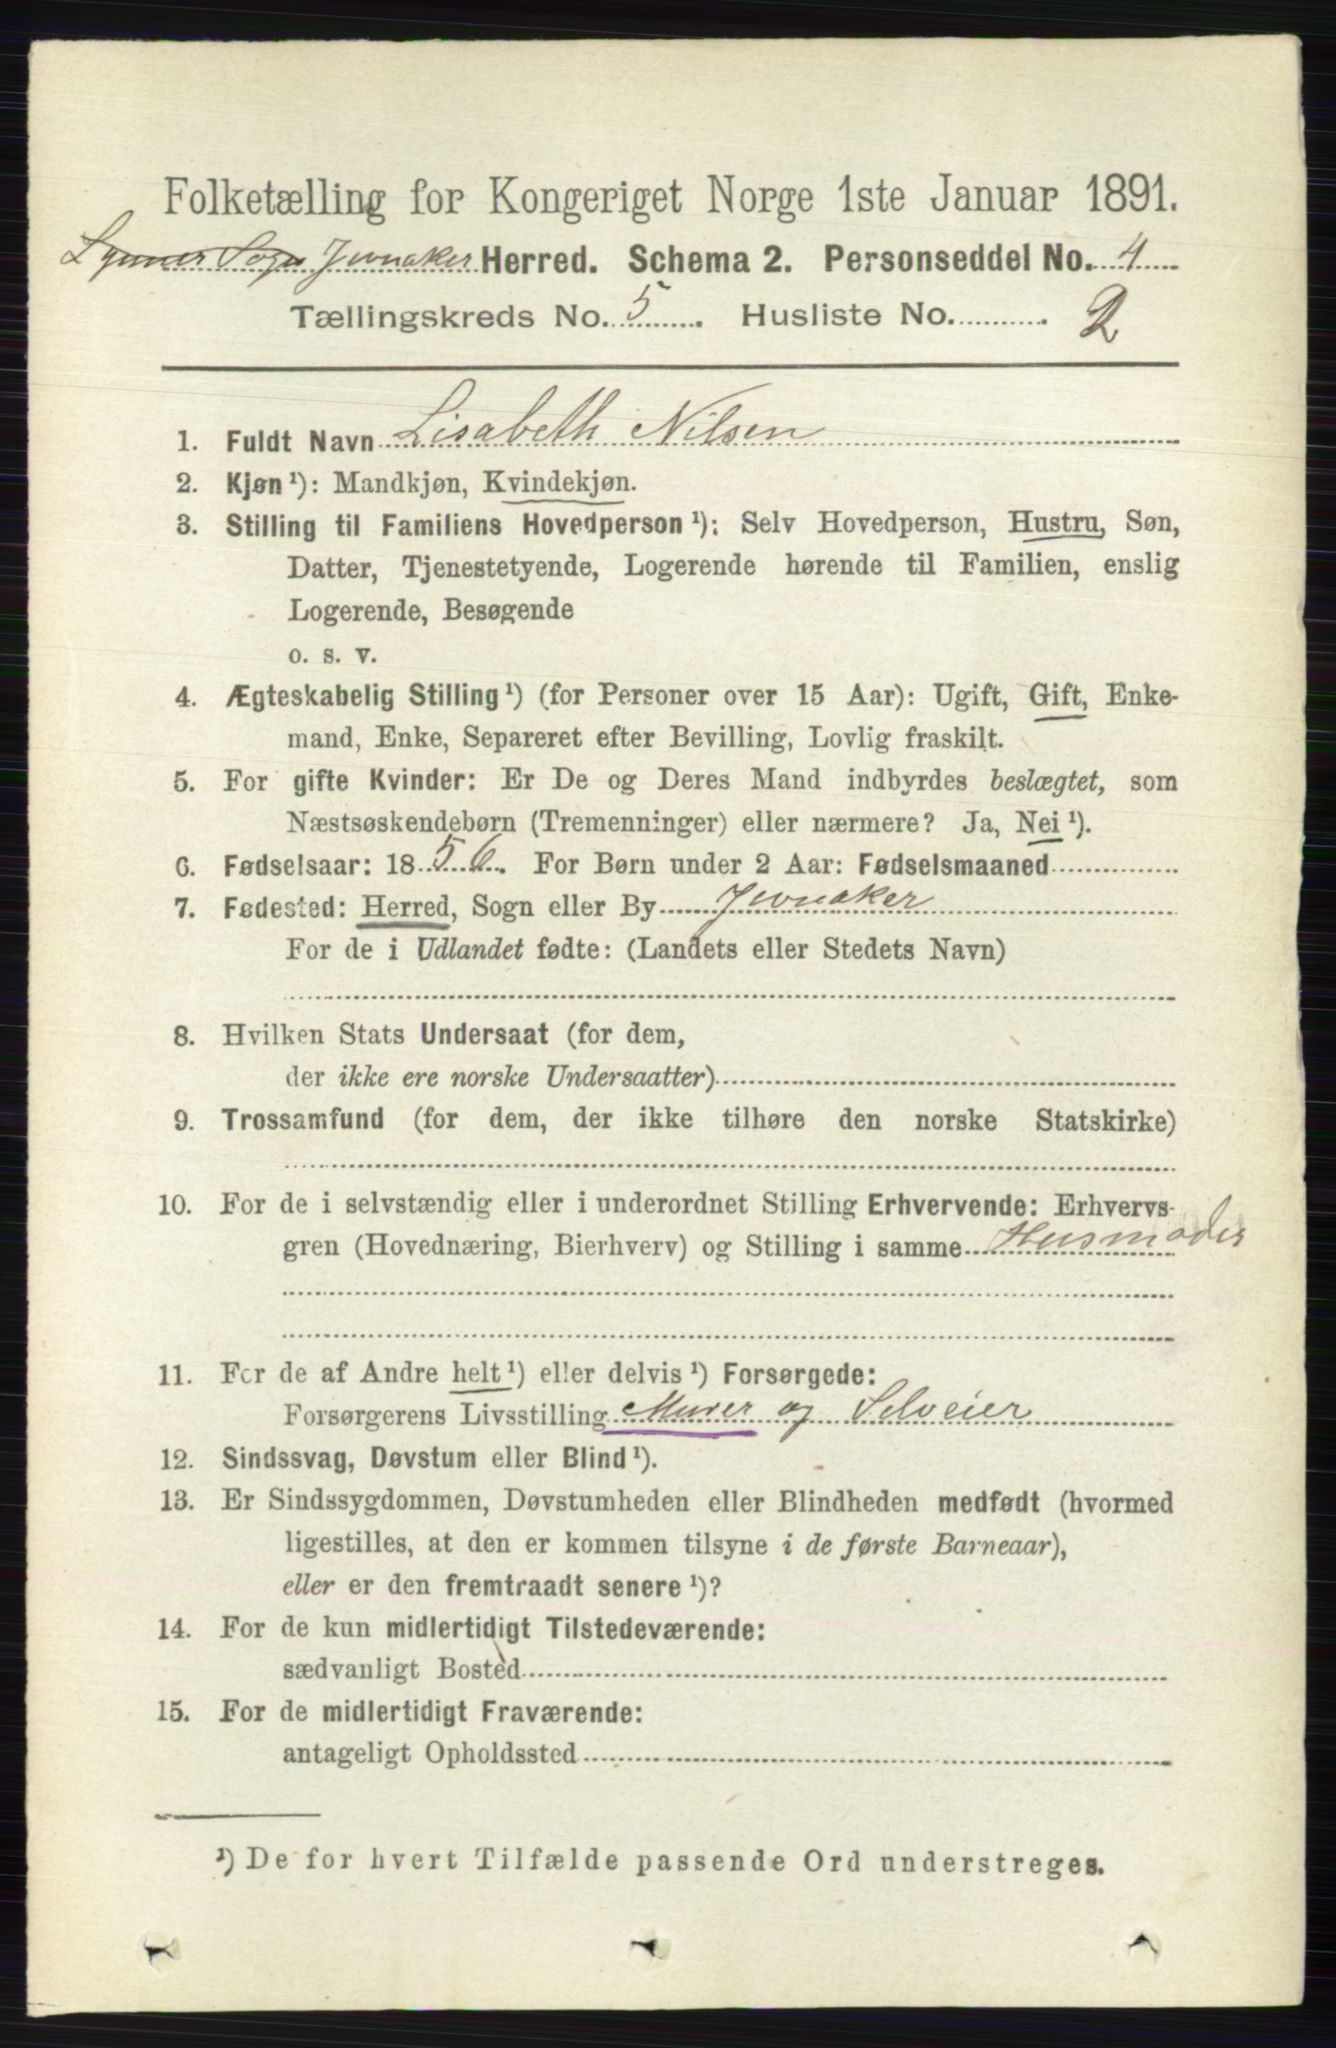 Folketælling for Kongeriget Norge 1ste Januar 1891.
Lynner Sogn Jevnaker Herred. Schema 2. Personseddel No. 4
Tællingskreds No. 5. Husliste No. 2
1. Fuldt Navn Lisabeth Nilsen
2. Kjøn¹): Mandkjøn, Kvindekjøn.
3. Stilling til Familiens Hovedperson¹): Selv Hovedperson, Hustru, Søn,
Datter, Tjenestetyende, Logerende hørende til Familien, enslig
Logerende, Besøgende
o. s. v.
4. Ægteskabelig Stilling¹) (for Personer over 15 Aar): Ugift, Gift, Enke-
mand, Enke, Separeret efter Bevilling, Lovlig fraskilt.
5. For gifte Kvinder: Er De og Deres Mand indbyrdes beslægtet, som
Næstsøskendebørn (Tremenninger) eller nærmere? Ja, Nei¹).
6. Fødselsaar: 1856. For Børn under 2 Aar: Fødselsmaaned
7. Fødested: Herred, Sogn eller By Jevnaker
For de i Udlandet fødte: (Landets eller Stedets Navn)
8. Hvilken Stats Undersaat (for dem,
der ikke ere norske Undersaatter)
9. Trossamfund (for dem, der ikke tilhøre den norske Statskirke)
10. For de i selvstændig eller i underordnet Stilling Erhvervende: Erhvervs-
gren (Hovednæring, Bierhverv) og Stilling i samme Husmoder
11. For de af Andre helt¹) eller delvis¹) Forsørgede:
Forsørgerens Livsstilling Murer og Selveier
12. Sindssvag, Døvstum eller Blind¹).
13. Er Sindssygdommen, Døvstumheden eller Blindheden medfødt (hvormed
ligestilles, at den er kommen tilsyne i de første Barneaar),
eller er den fremtraadt senere¹)?
14. For de kun midlertidigt Tilstedeværende:
sædvanligt Bosted
15. For de midlertidigt Fraværende:
antageligt Opholdssted
¹) De for hvert Tilfælde passende Ord understreges.